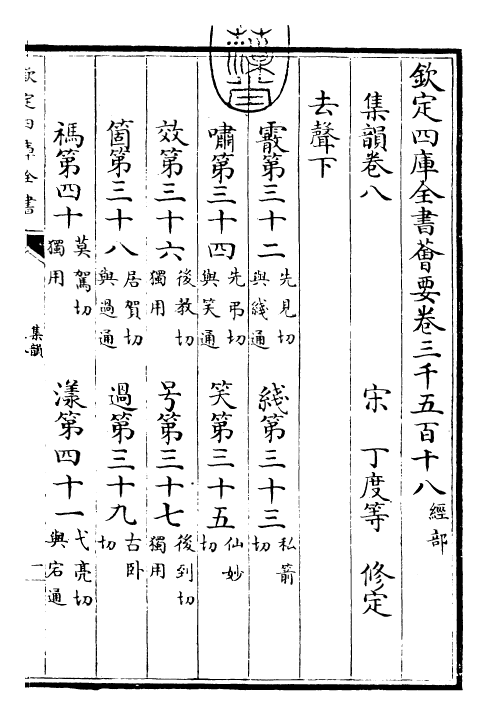 欽定四庫全書薈要卷三千五百十八 經部
集韻卷八
宋 丁度等 修定
去聲下
霰第三十二 先見切與綫通 綫第三十三 私箭切
嘯第三十四 先弔切與笑通 笑第三十五 仙妙切
效第三十六 後教切獨用 号第三十七 後到切獨用
箇第三十八 居賀切與過通 過第三十九 古卧切
禡第四十 莫駕切獨用 漾第四十一 弋亮切與宕通
欽定四庫全書
集韻
一